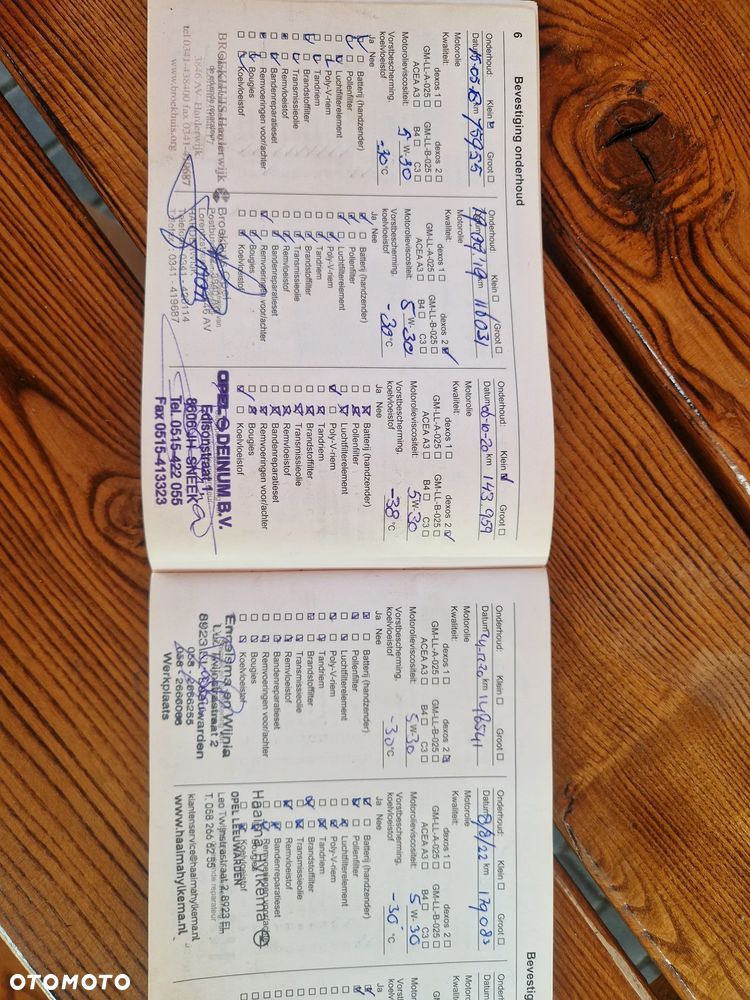 6 Bevestiging onderhoud
Onderhoud: Klein Groot
Datum km 75935
Motorolie
Kwaliteit: dexos 1 dexos 2
GM-LL-A-025 GM-LL-B-025
ACEA A3 B4 C3
Motorolieviscositeit: 5 W-30
Vorstbescherming, koelvloeistof -30 °C
Ja Nee
Batterij (handzender)
Pollenfilter
Luchtfilterelement
Poly-V-riem
Tandriem
Brandstoffilter
Transmissieolie
Remvloeistof
Bandenreparatieset
Remvoeringen voor/achter
Bougies
Koelvloeistof
BROEKHUIS Harderwijk
3846 AV Harderwijk
tel 0341-438400 fax 0341-419687
www.broekhuis.org
Onderhoud: Klein Groot
km 111031
Motorolie
Kwaliteit: dexos 1 dexos 2
GM-LL-A-025 GM-LL-B-025
ACEA A3 B4 C3
Motorolieviscositeit: 5 W-30
Vorstbescherming, koelvloeistof °C
Ja Nee
Batterij (handzender)
Pollenfilter
Luchtfilterelement
Poly-V-riem
Tandriem
Brandstoffilter
Transmissieolie
Remvloeistof
Bandenreparatieset
Remvoeringen voor/achter
Bougies
Koelvloeistof
0341 - 419687
Onderhoud: Klein Groot
Datum km 143 959
Motorolie
Kwaliteit: dexos 1 dexos 2
GM-LL-A-025 GM-LL-B-025
ACEA A3 B4 C3
Motorolieviscositeit: 5 W-30
Vorstbescherming, koelvloeistof -38 °C
Ja Nee
Batterij (handzender)
Pollenfilter
Luchtfilterelement
Poly-V-riem
Tandriem
Brandstoffilter
Transmissieolie
Remvloeistof
Bandenreparatieset
Remvoeringen voor/achter
Bougies
Koelvloeistof
OPEL DEINUM B.V.
Edisonstraat 1
SNEEK
Tel. 0515-422 055
Fax 0515-413323
Onderhoud: Klein Groot
Datum km
Motorolie
Kwaliteit: dexos 1 dexos 2
GM-LL-A-025 GM-LL-B-025
ACEA A3 B4 C3
Motorolieviscositeit: 5 W-30
Vorstbescherming, koelvloeistof -30 °C
Ja Nee
Batterij (handzender)
Pollenfilter
Luchtfilterelement
Poly-V-riem
Tandriem
Brandstoffilter
Transmissieolie
Remvloeistof
Bandenreparatieset
Remvoeringen voor/achter
Bougies
Koelvloeistof
Engelsma en Wijnia
8923 Leeuwarden
058 - 2666255
058 - 2666066
Werkplaats
Bevestiging
Onderhoud: Klein Groot
Datum 8/8/22 km 179083
Motorolie
Kwaliteit: dexos 1 dexos 2
GM-LL-A-025 GM-LL-B-025
ACEA A3 B4 C3
Motorolieviscositeit: 5 W-30
Vorstbescherming, koelvloeistof -30 °C
Ja Nee
Batterij (handzender)
Pollenfilter
Luchtfilterelement
Poly-V-riem
Tandriem
Brandstoffilter
Transmissieolie
Remvloeistof
Bandenreparatieset
Remvoeringen voor/achter
Bougies
Koelvloeistof
Haaima Hylkema
OPEL LEEUWARDEN
T. 058 266 62 55
klantenservice@haaimahylkema.nl
www.haaimahylkema.nl
Ja
OTOMOTO